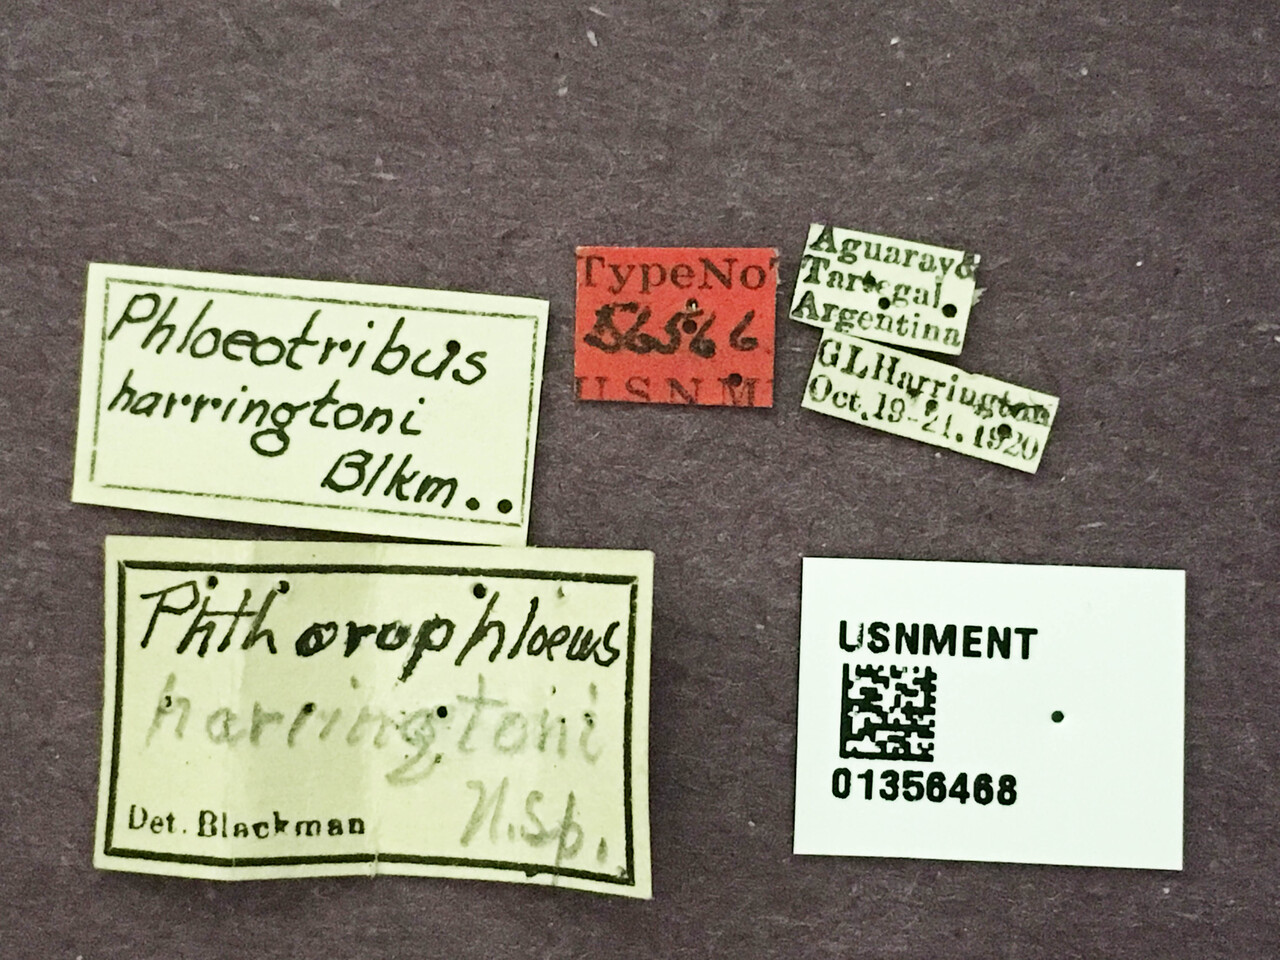 Phloeotribus
harringtoni
Blkm..
TypeNo
56566
U.S.N.M
Aguaray&
Tartegal.
Argentina
GLHarrington
Oct.19-21.1920
Phthorophloeus
harringtoni
N.Sp.
Det. Blackman
USNMENT
01356468